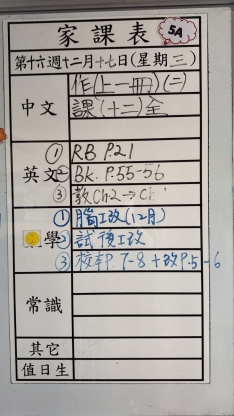 家課表
5A
第十六週十二月十七日(星期三)
中文
作(上一冊)(二)
課(十二)全
英文
① RB P.21
② BK. P.55-56
③ Ch.2→Ch
學
① 腦工改(12月)
② 試預工改
③ 校 P. 7-8 + 改P.5-6
常識
其它
值日生